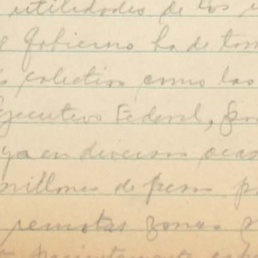 utilidades de los
Gobierno ha de tom
colectivo como las
Ejecutivo Federal, por
ya en diversas ocas
millones de pesos p
remotas zonas